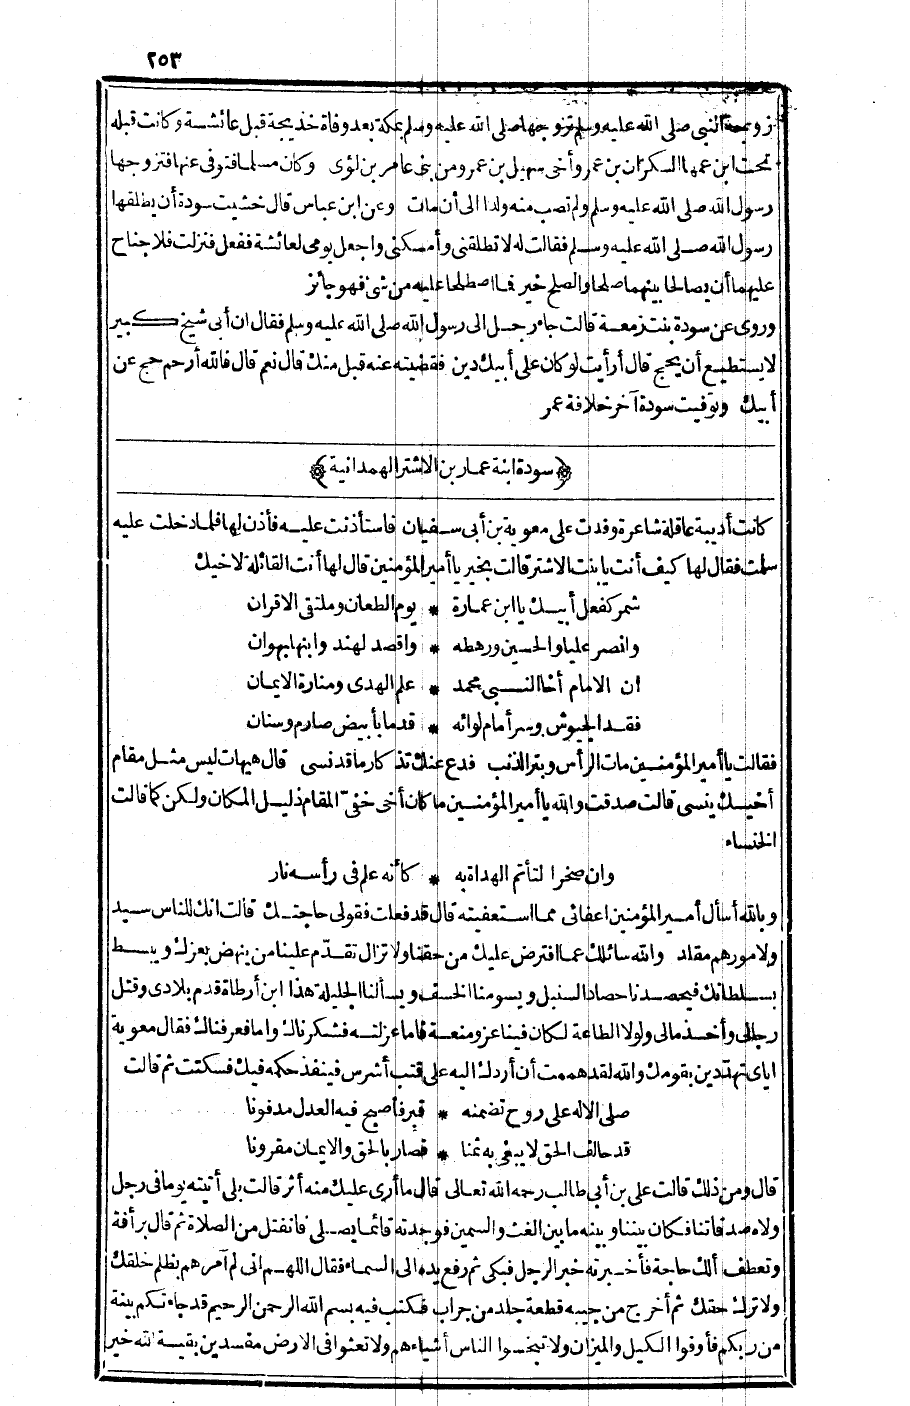 ٢٥٣
زوجة النبي صلى الله عليه وسلم تزوجها صلى الله عليه وسلم بمكة بعد وفاة خديجة قبل عائشة وكانت قبله
تحت ابن عمها السكران بن عمرو أخى سهيل بن عمرو من بنى عامر بن لؤى وكان مسلما فتوفى عنها فتزوجها
رسول الله صلى الله عليه وسلم ولم تصب منه ولدا الى أن مات وعن ابن عباس قال خشيت سودة أن يطلقها
رسول الله صلى الله عليه وسلم فقالت له لا تطلقنى وأمسكنى واجعل يومى لعائشة ففعل فنزلت فلا جناح
عليهما أن يصالحا بينهما صلحا والصلح خير فما اصطلحا عليه من شئ فهو جائز
وروى عن سودة بنت زمعة قالت جاء رجل الى رسول الله صلى الله عليه وسلم فقال ان أبى شيخ كبير
لا يستطيع أن يحج قال أرأيت لو كان على أبيك دين فقضيته عنه قبل منك قال نعم قال فالله أرحم حج عن
أبيك وتوفيت سودة آخر خلافة عمر
﴿سودة ابنة عمار بن الاشتر الهمدانية﴾
كانت أديبة عاقلة شاعرة وفدت على معوية بن أبى سفيان فاستأذنت عليه فأذن لها فلما دخلت عليه
سلمت فقال لها كيف أنت يا بنت الاشتر قالت بخير يا أمير المؤمنين قال لها أنت القائلة لاخيك
شمر كفعل أبيك يا ابن عمارة * يوم الطعان وملتقى الاقران
وانصر عليا والحسين ورهطه * واقصد لهند وابنها بهوان
ان الامام أخا النبى محمد * علم الهدى ومنارة الايمان
فقد الجيوش وسر أمام لوائه * قدما بأبيض صارم وسنان
فقالت يا أمير المؤمنين مات الرأس وبتر الذنب فدع عنك تذكار ما قد نسى قال هيهات ليس مثل مقام
أخيك ينسى قالت صدقت والله يا أمير المؤمنين ما كان أخى خفىّ المقام ذليل المكان ولكن كما قالت
الخنساء
وان صخرا لتأتم الهداة به * كأنه علم فى رأسه نار
وبالله أسأل أمير المؤمنين اعفائى مما استعفيته قال قد فعلت فقولى حاجتك قالت انك للناس سيد
ولامورهم مقلد والله سائلك عما افترض عليك من حقنا ولا تزال تقدّم علينا من ينهض بعزك ويبسط
بسلطانك فيحصدنا حصاد السنبل ويسومنا الخسف ويسألنا الجليلة هذا ابن أرطاة قدم بلادى وقتل
رجالى وأخذ مالى ولولا الطاعة لكان فينا عز ومنعة فاما عزلته فشكرناك واما فعرفناك فقال معوية
اياى تهددين بقومك والله لقد هممت أن أردك اليه على قتب أشرس فينفذ حكمه فيك فسكتت ثم قالت
صلى الاله على روح تضمنه * قبر فأصبح فيه العدل مدفونا
قد حالف الحق لا يبغى به ثمنا * فصار بالحق والايمان مقرونا
قال ومن ذلك قالت على بن أبى طالب رحمه الله تعالى قال ما أرى عليك منه أثر قالت بلى أتيته يوما فى رجل
ولاه صدقاتنا فكان بيننا وبينه ما بين الغث والسمين فوجدته قائما يصلى فانفتل من الصلاة ثم قال برأفة
وتعطف ألك حاجة فأخبرته خبر الرجل فبكى ثم رفع يده الى السماء فقال اللهم انى لم آمرهم بظلم خلقك
ولا ترك حقك ثم أخرج من جيبه قطعة جلد من جراب فكتب فيه بسم الله الرحمن الرحيم قد جاءتكم بينة
من ربكم فأوفوا الكيل والميزان ولا تبخسوا الناس أشياءهم ولا تعثوا فى الارض مفسدين بقية الله خير